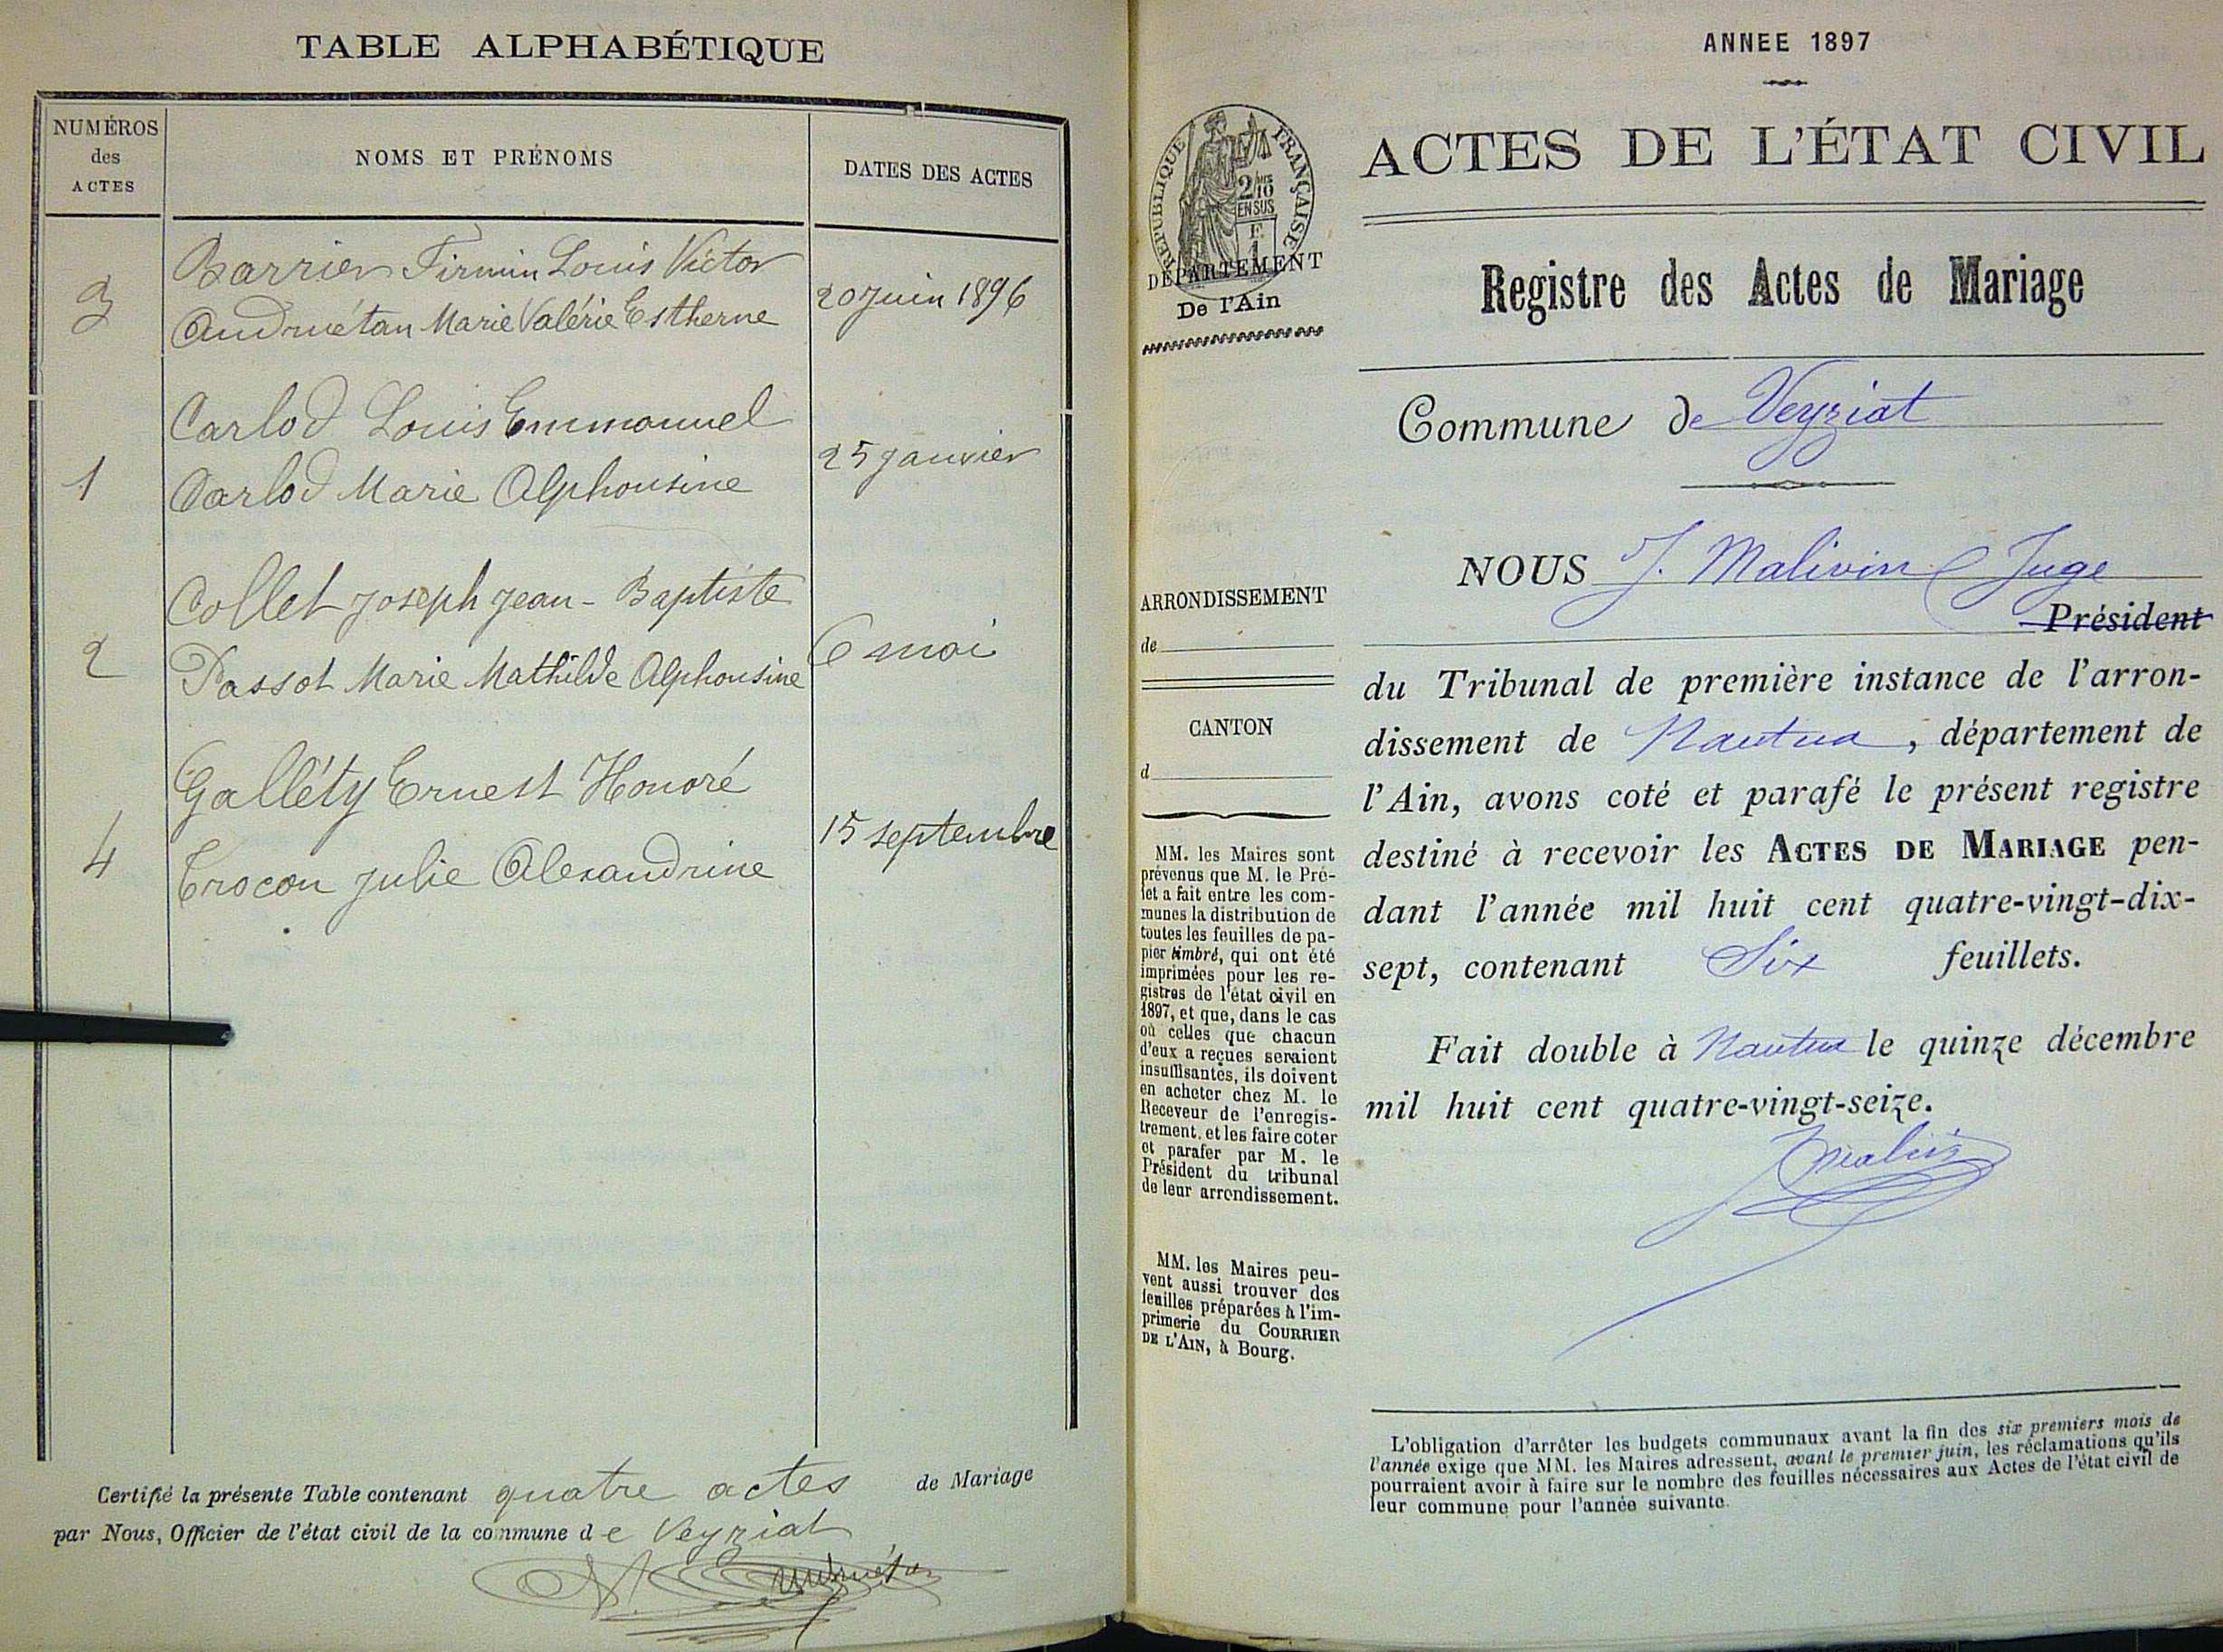 TABLE ALPHABÉTIQUE
NUMÉROS
des
ACTES
NOMS ET PRÉNOMS
DATES DES ACTES
3
Barrier Firmin Louis Victor
Andruétan Marie Valérie Estherne
20 Juin 1896
1
Carlod Louis Emmanuel
Carlod Marie Alphonsine
25 Janvier
2
Collet Joseph Jean-Baptiste
Passot Marie Mathilde Alphonsine
6 mai
4
Galléty Ernest Honoré
Crocon Julie Alexandrine
15 septembre
Certifié la présente Table contenant quatre actes de Mariage
par Nous, Officier de l'état civil de la commune de Veyziat
ANNEE 1897
RÉPUBLIQUE FRANÇAISE
2/10
EN SUS
F.
1
DÉPARTEMENT
De l'Ain
ACTES DE L'ÉTAT CIVIL
Registre des Actes de Mariage
Commune de Veyziat
ARRONDISSEMENT
de
CANTON
d
MM. les Maires sont
prévenus que M. le Pré-
fet a fait entre les com-
munes la distribution de
toutes les feuilles de pa-
pier timbré, qui ont été
imprimées pour les re-
gistres de l'état civil en
1897, et que, dans le cas
où celles que chacun
d'eux a reçues seraient
insuffisantes, ils doivent
en acheter chez M. le
Receveur de l'enregis-
trement, et les faire coter
et parafer par M. le
Président du tribunal
de leur arrondissement.
MM. les Maires peu-
vent aussi trouver des
feuilles préparées à l'im-
primerie du COURRIER
DE L'AIN, à Bourg.
NOUS J. Malivin Juge
Président
du Tribunal de première instance de l'arron-
dissement de Nantua, département de
l'Ain, avons coté et parafé le présent registre
destiné à recevoir les ACTES DE MARIAGE pen-
dant l'année mil huit cent quatre-vingt-dix-
sept, contenant Six feuillets.
Fait double à Nantua le quinze décembre
mil huit cent quatre-vingt-seize.
L'obligation d'arrêter les budgets communaux avant la fin des six premiers mois de
l'année exige que MM. les Maires adressent, avant le premier juin, les réclamations qu'ils
pourraient avoir à faire sur le nombre des feuilles nécessaires aux Actes de l'état civil de
leur commune pour l'année suivante.